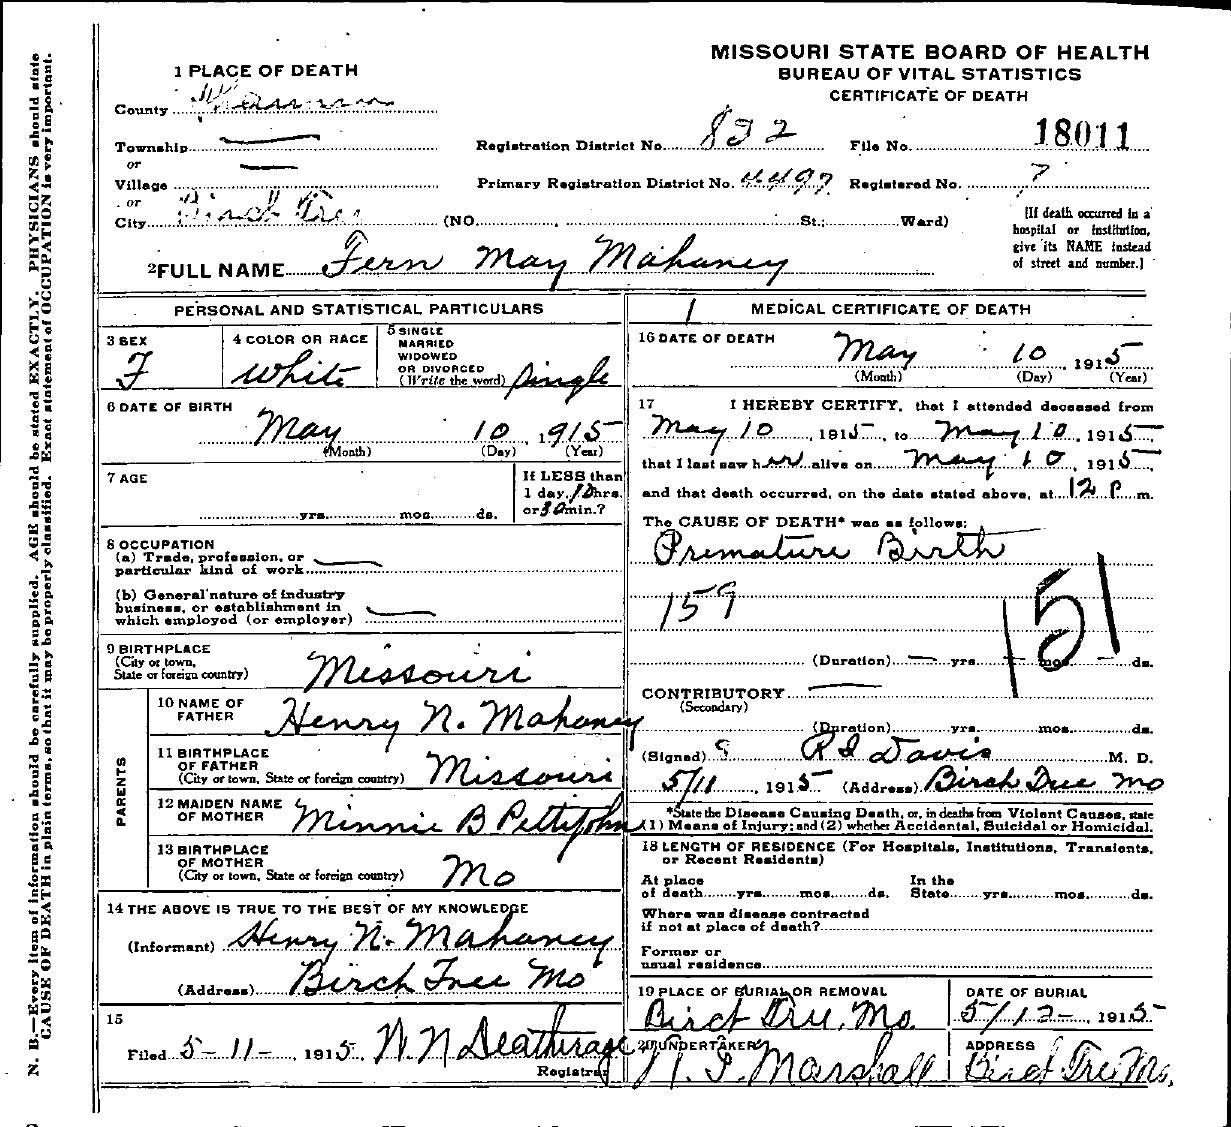 MISSOURI STATE BOARD OF HEALTH
BUREAU OF VITAL STATISTICS
CERTIFICATE OF DEATH
1 PLACE OF DEATH
County
Township
or
Village
or
City Birch Tree (NO. St.; Ward)
Registration District No. 832 File No. 18011
Primary Registration District No. 4497 Registered No. 7
[If death occurred in a
hospital or institution,
give its NAME instead
of street and number.]
2 FULL NAME Fern May Mahaney
PERSONAL AND STATISTICAL PARTICULARS
3 SEX
F
4 COLOR OR RACE
White
5 SINGLE
MARRIED
WIDOWED
OR DIVORCED
(Write the word) Single
6 DATE OF BIRTH
May 10, 1915
(Month) (Day) (Year)
7 AGE
yrs. mos. ds.
If LESS than
1 day, 12 hrs.
or 30 min.?
8 OCCUPATION
(a) Trade, profession, or
particular kind of work
(b) General nature of industry
business, or establishment in
which employed (or employer)
9 BIRTHPLACE
(City or town,
State or foreign country) Missouri
PARENTS
10 NAME OF
FATHER Henry N. Mahaney
11 BIRTHPLACE
OF FATHER
(City or town, State or foreign country) Missouri
12 MAIDEN NAME
OF MOTHER Minnie B Pettijohn
13 BIRTHPLACE
OF MOTHER
(City or town, State or foreign country) Mo
14 THE ABOVE IS TRUE TO THE BEST OF MY KNOWLEDGE
(Informant) Henry N. Mahaney
(Address) Birch Tree Mo
15
Filed 5-11-, 1915, N. N Deatherage
Registrar
1 MEDICAL CERTIFICATE OF DEATH
16 DATE OF DEATH
May 10, 1915
(Month) (Day) (Year)
17 I HEREBY CERTIFY, that I attended deceased from
May 10, 1915, to May 10, 1915,
that I last saw her alive on May 10, 1915,
and that death occurred, on the date stated above, at 12 P m.
The CAUSE OF DEATH* was as follows:
Premature Birth
159
151
(Duration) yrs. mos. ds.
CONTRIBUTORY
(Secondary)
(Duration) yrs. mos. ds.
(Signed) R I Davis M. D.
5/11, 1915 (Address) Birch Tree Mo
*State the Disease Causing Death, or, in deaths from Violent Causes, state
(1) Means of Injury; and (2) whether Accidental, Suicidal or Homicidal.
18 LENGTH OF RESIDENCE (For Hospitals, Institutions, Transients,
or Recent Residents)
At place In the
of death yrs. mos. ds. State yrs. mos. ds.
Where was disease contracted
if not at place of death?
Former or
usual residence
19 PLACE OF BURIAL OR REMOVAL
Birch Tree, Mo.
DATE OF BURIAL
5/12-, 1915
20 UNDERTAKER
Marshall
ADDRESS
Birch Tree Mo,
N. B.—Every item of information should be carefully supplied. AGE should be stated EXACTLY. PHYSICIANS should state
CAUSE OF DEATH in plain terms, so that it may be properly classified. Exact statement of OCCUPATION is very important.